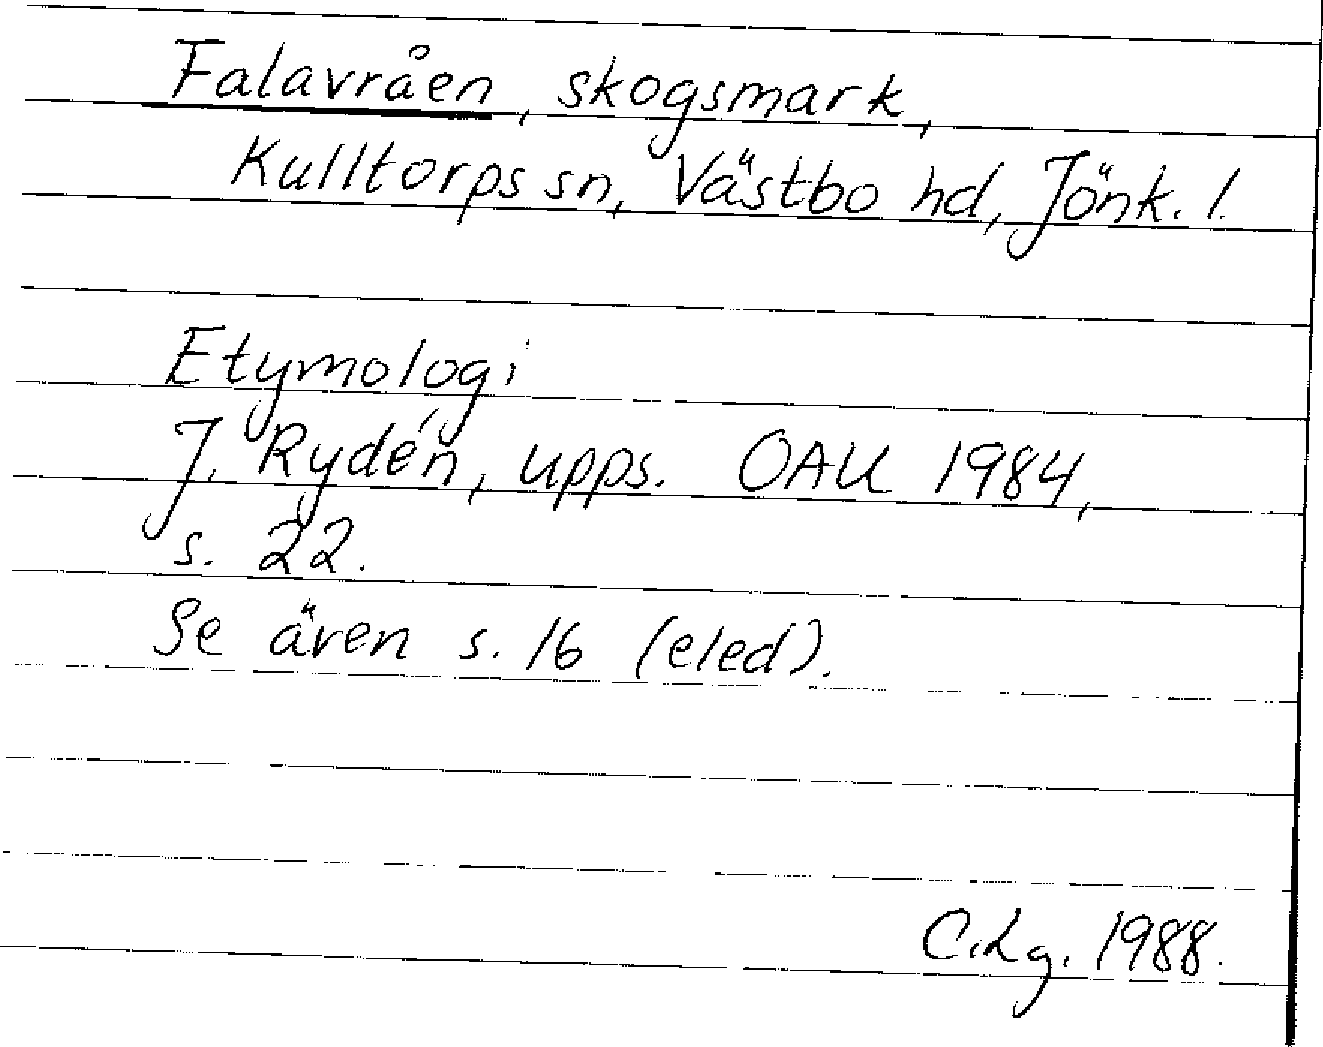 Falavråen, skogsmark,
Kulltorps sn, Västbo hd, Jönk. l.
Etymologi
J. Rydén, upps. OAU 1984,
s. 22.
Se även s. 16 (eled).
C.Lg. 1988.